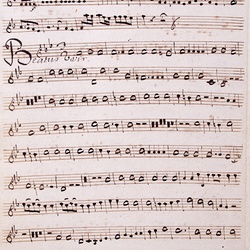 Beatus vir.